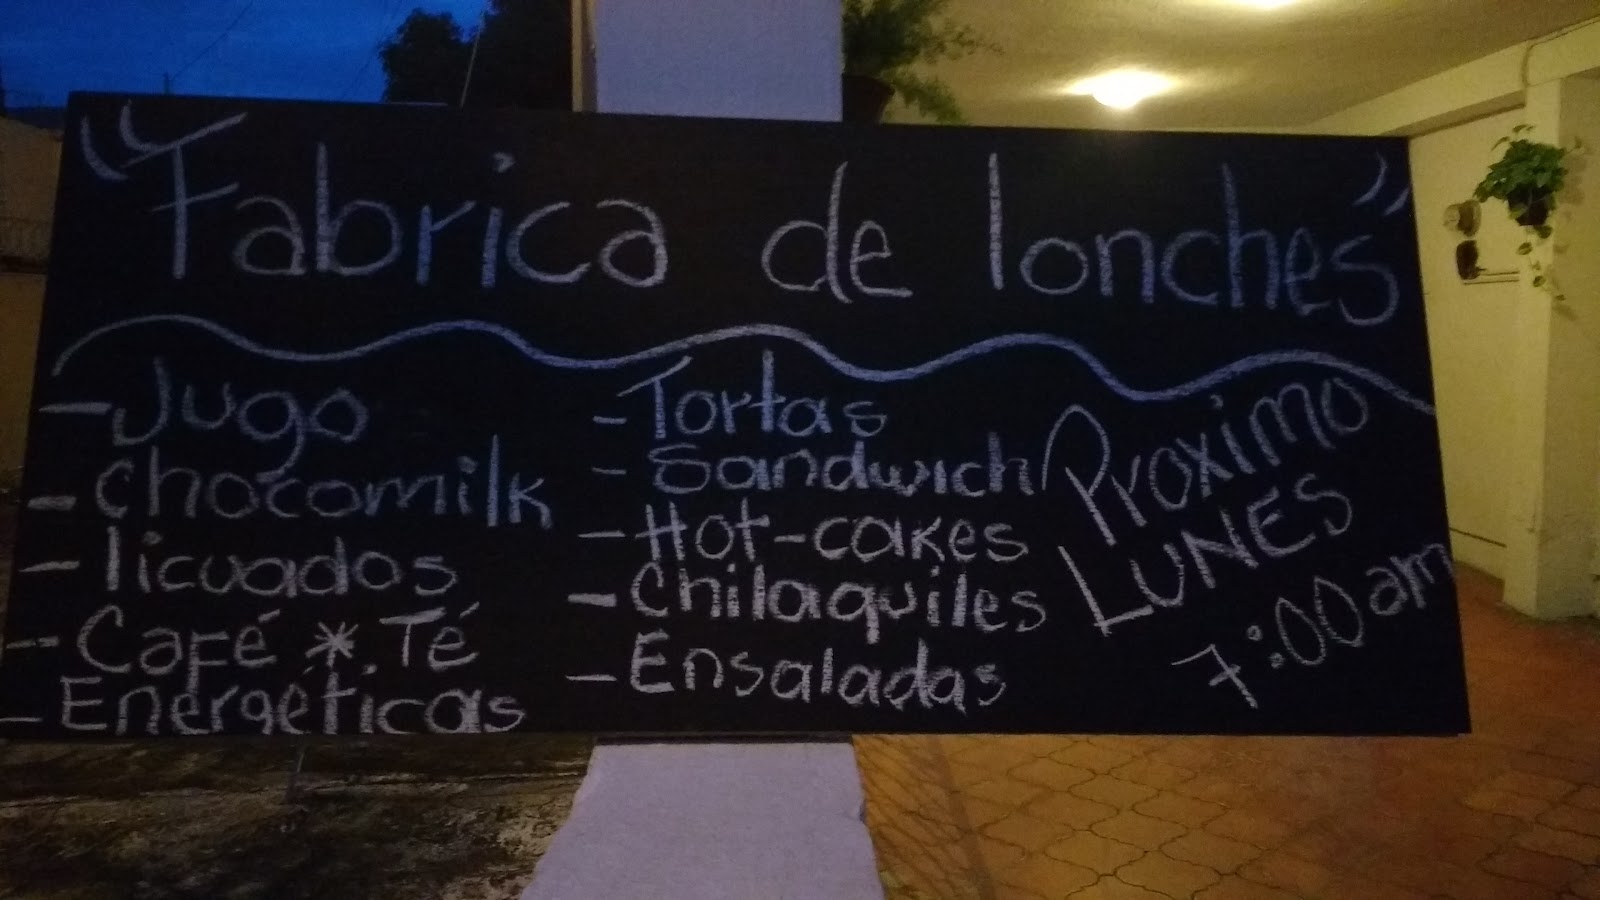 "Fabrica de lonches"
- Jugo
- chocomilk
- licuados
- Café * Té
- Energéticas
- Tortas
- Sandwich
- Hot-cakes
- Chilaquiles
- Ensaladas
Proximo
LUNES
7:00 am